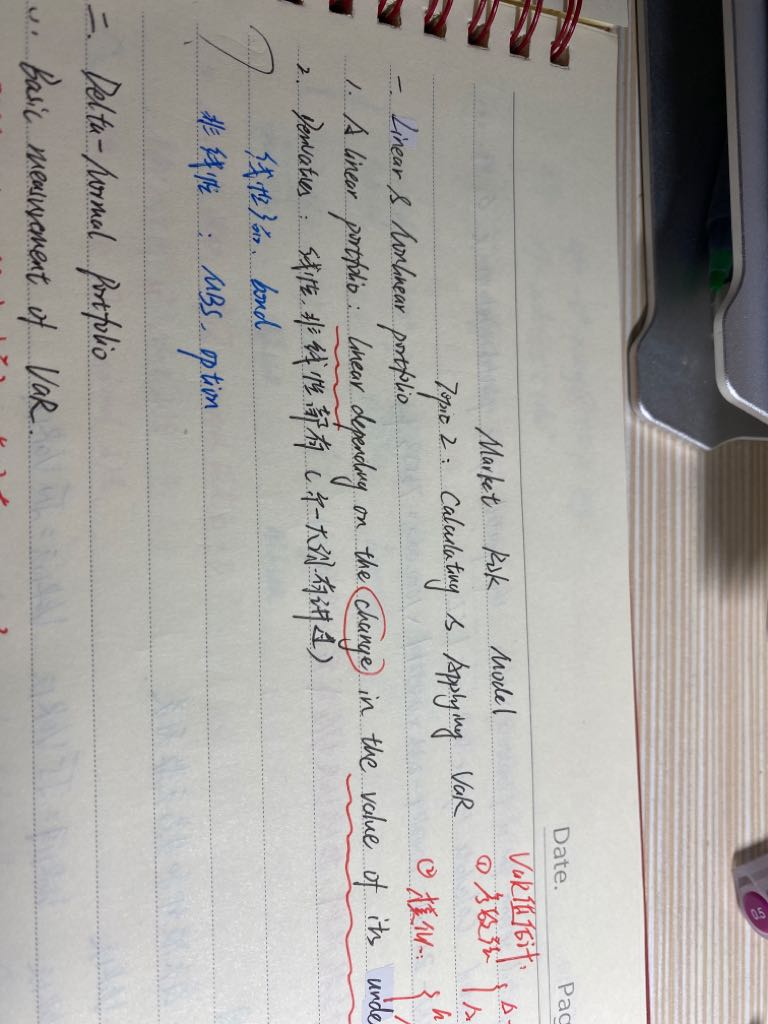 Date.
Pag
Market Risk Model
VaR值估计:
Topic 2: Calculating & Applying VaR
① 参数法 { Δ-
② 模拟: { h
一. Linear & Nonlinear portfolio
1. A linear portfolio: linear depending on the change in the value of its unde
2. Derivatives: 线性, 非线性都有
线性: bond
非线性: MBS, option
二. Delta-Normal Portfolio
1. Basic measurement of VaR.